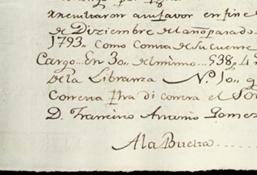 a su favor en fin e
de Diziembre del año pasado
1793 como Consta de su cuenta
Cargo. En 30 del mismo 538,, 4
de la Libranza N. 10
Correna fha di contra el
D. Francisco Antonio Gomez
A la Buelta